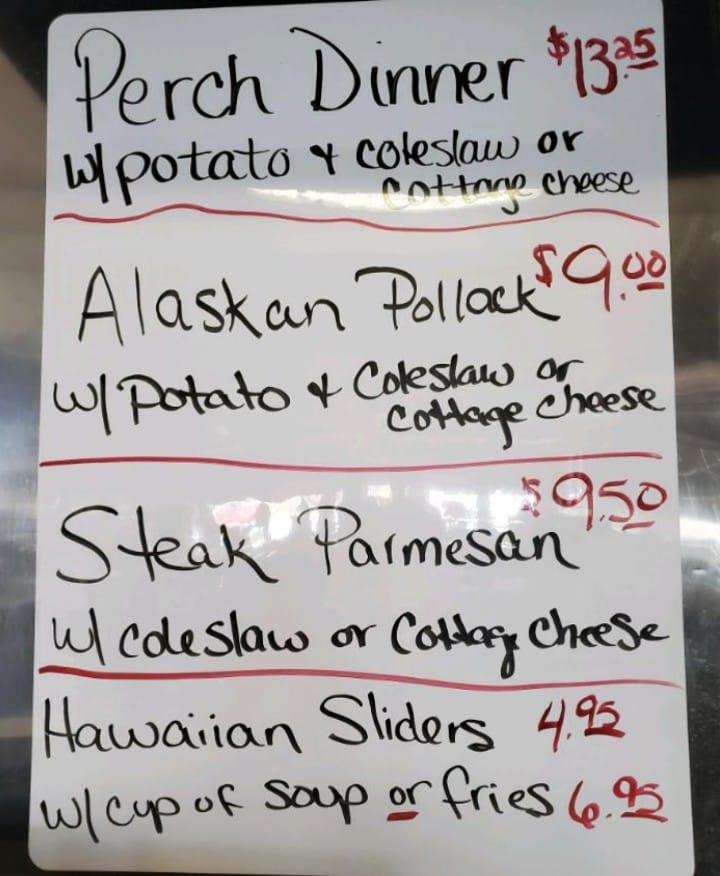 Perch Dinner $13.25
w/ potato & coleslaw or
cottage cheese
Alaskan Pollack $9.00
w/ Potato & Coleslaw or
cottage cheese
Steak Parmesan $9.50
w/ coleslaw or Cottag cheese
Hawaiian Sliders 4.95
w/ cup of soup or fries 6.95